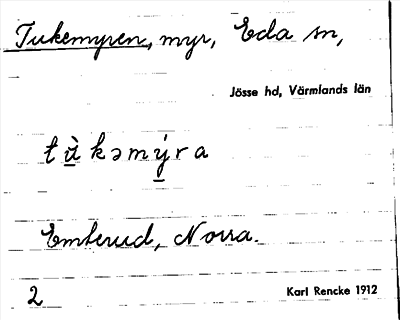 Tukemyren, myr, Eda sn,
Jösse hd, Värmlands län
tu̱̇̀kəmý̱ra
Emterud, Norra.
2
Karl Rencke 1912